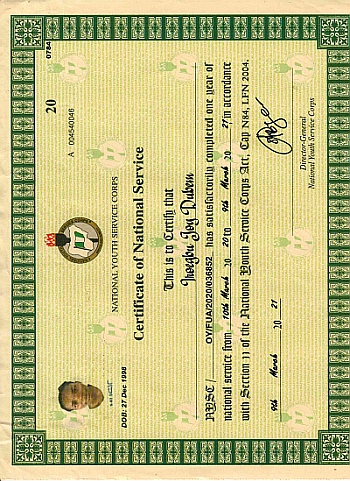 0784
20
A 004540046
NATIONAL YOUTH SERVICE CORPS
Certificate of National Service
DOB: 27 Dec 1998
This is to Certify that
Joy Ruben
NYSC OY/FUA/2020/036852 has satisfactorily completed one year of
national service from 10th March 20 20 to 9th March 20 21 in accordance
with Section 11 of the National Youth Service Corps Act, Cap N84, LFN 2004.
9th March 20 21
Director-General
National Youth Service Corps